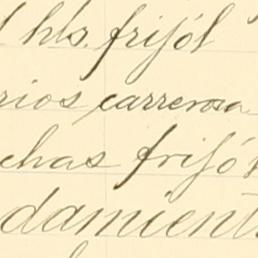 hls. frijól
rios carrerosa
chas frijó
damient